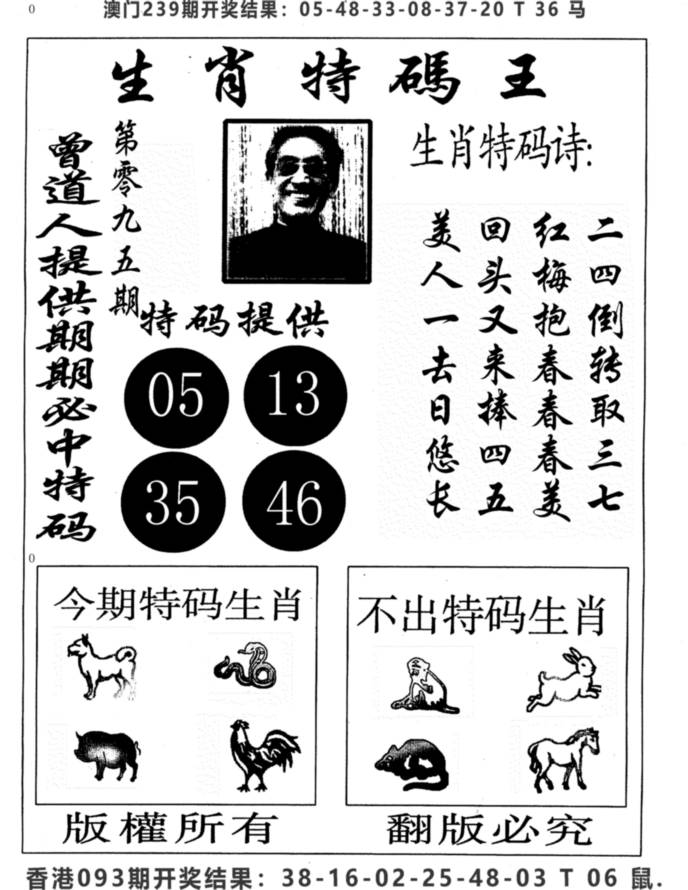 0
澳门239期开奖结果：05-48-33-08-37-20 T 36 马
生肖特碼王
曾道人提供期期必中特码
第零九五期
特码提供
05 13
35 46
生肖特码诗:
二四倒转取三七
红梅抱春春春美
回头又来捧四五
美人一去日悠长
0
今期特码生肖
不出特码生肖
版權所有
翻版必究
香港093期开奖结果：38-16-02-25-48-03 T 06 鼠.